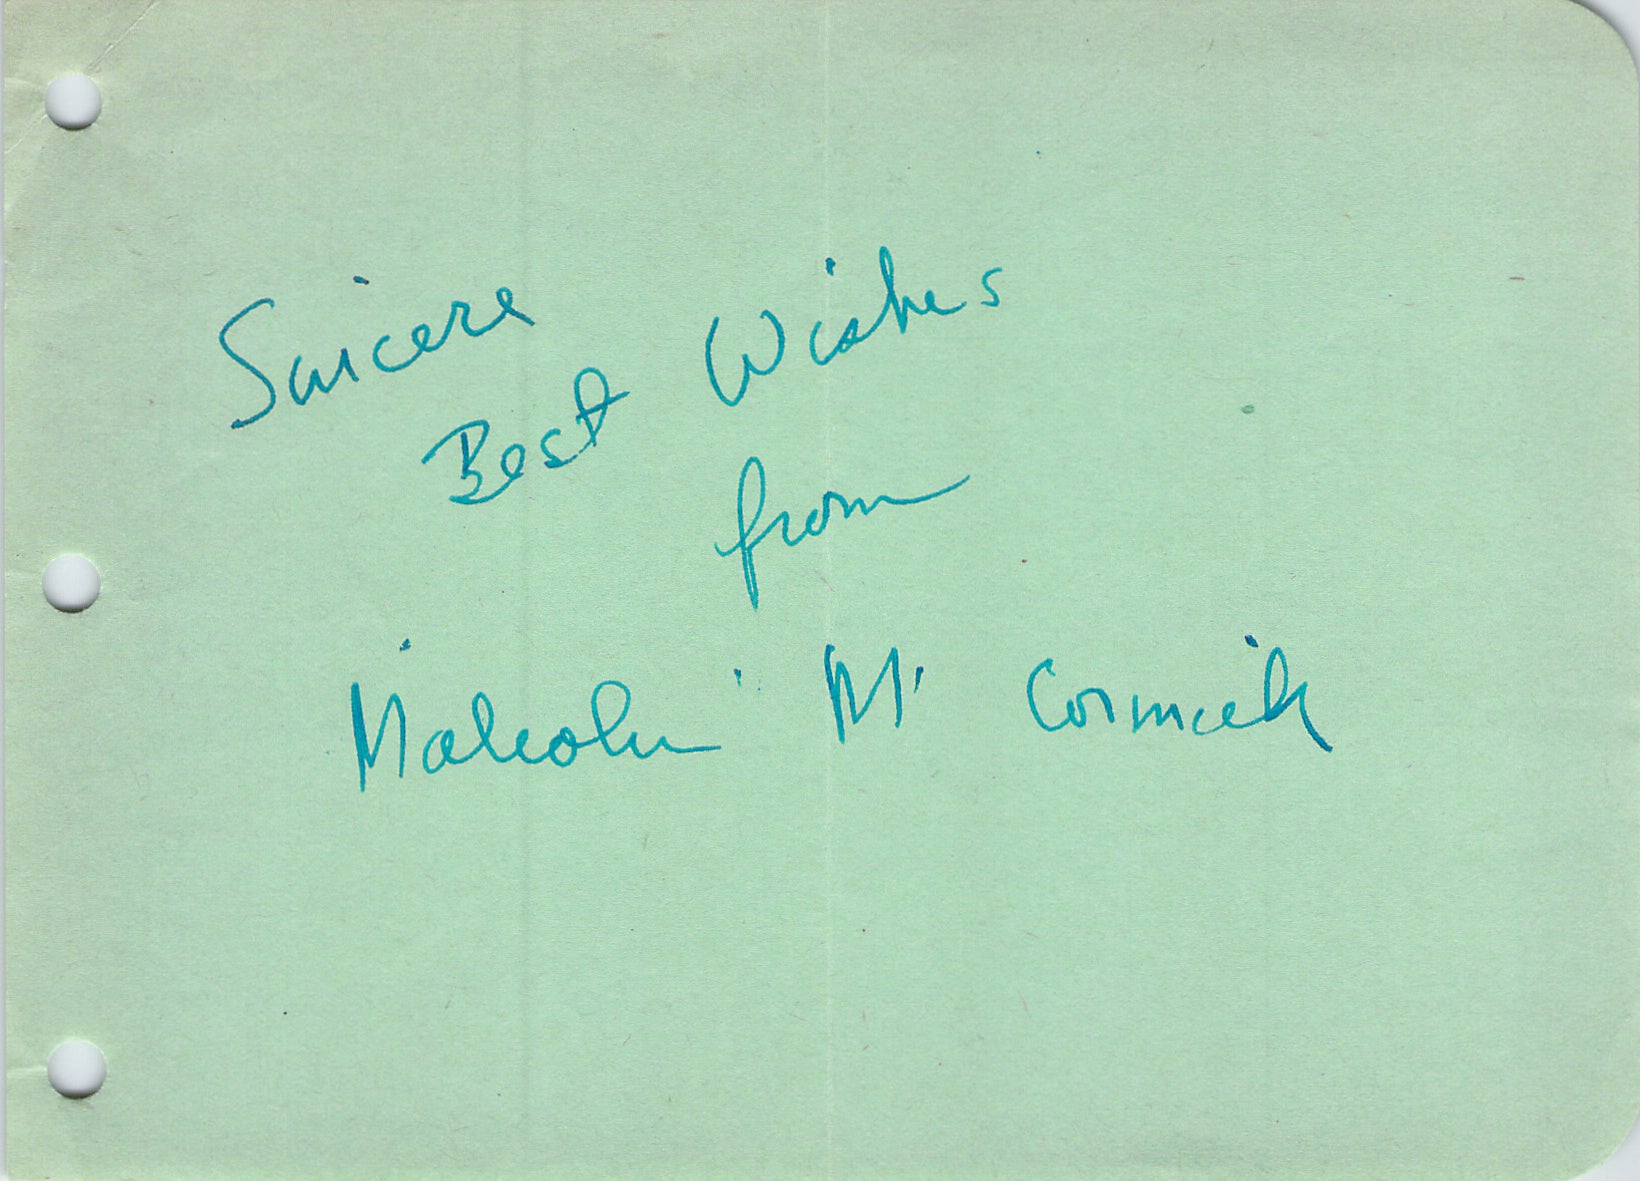 Sincere
Best Wishes
from
Malcolm M' Cormick